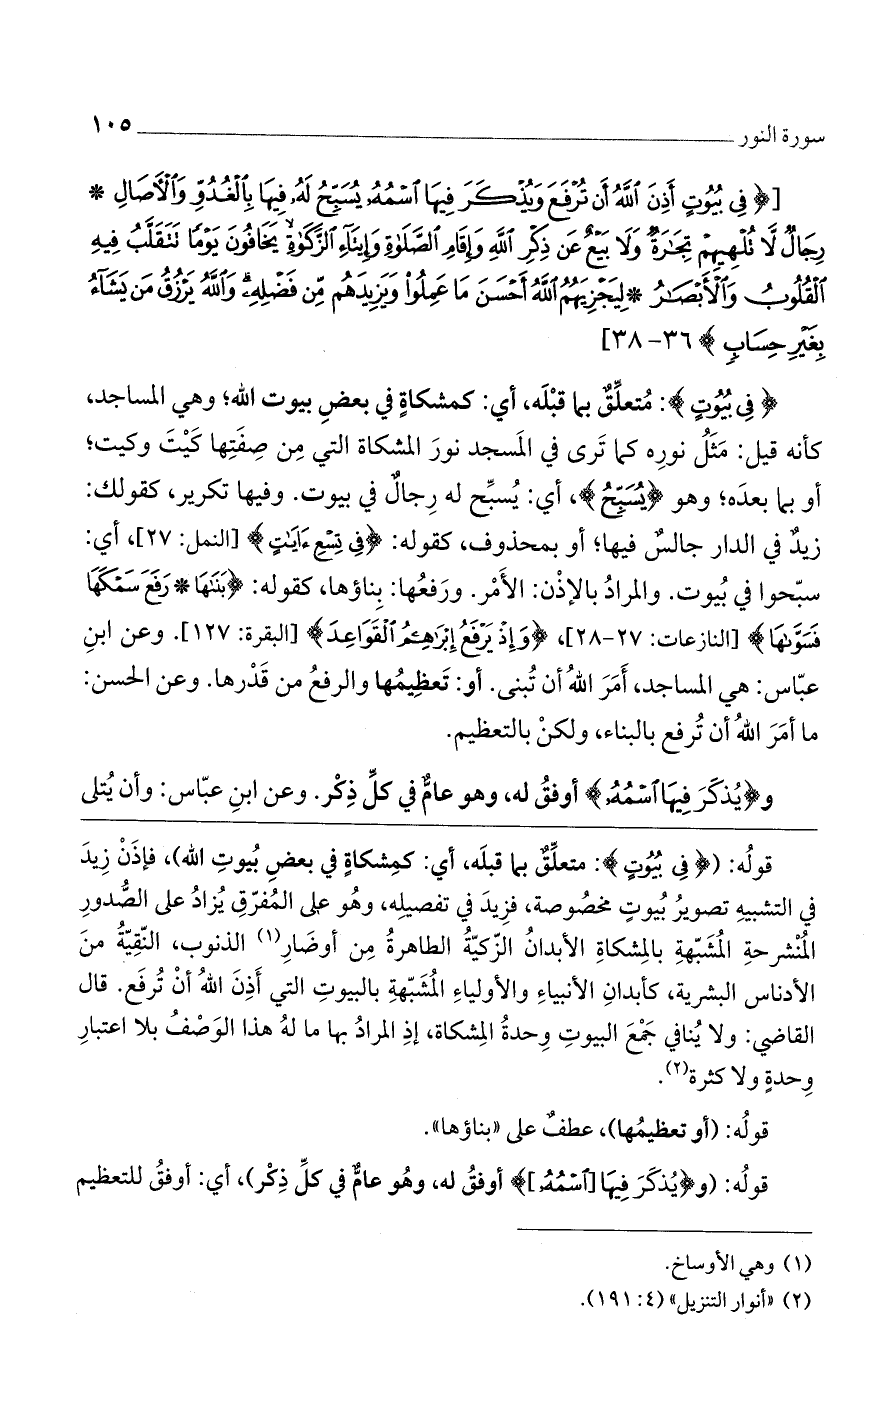 سورة النور ١٠٥
[﴿ فِي بُيُوتٍ أَذِنَ اللَّهُ أَن تُرْفَعَ وَيُذْكَرَ فِيهَا اسْمُهُ يُسَبِّحُ لَهُ فِيهَا بِالْغُدُوِّ وَالْآصَالِ *
رِجَالٌ لَّا تُلْهِيهِمْ تِجَارَةٌ وَلَا بَيْعٌ عَن ذِكْرِ اللَّهِ وَإِقَامِ الصَّلَوٰةِ وَإِيتَآءِ الزَّكَوٰةِ يَخَافُونَ يَوْمًا تَتَقَلَّبُ فِيهِ
الْقُلُوبُ وَالْأَبْصَٰرُ * لِيَجْزِيَهُمُ اللَّهُ أَحْسَنَ مَا عَمِلُوا وَيَزِيدَهُم مِّن فَضْلِهِ وَاللَّهُ يَرْزُقُ مَن يَشَآءُ
بِغَيْرِ حِسَابٍ ﴾ ٣٦-٣٨]
﴿ فِي بُيُوتٍ ﴾: مُتعلِّقٌ بما قبْلَه، أي: كمشكاةٍ في بعضِ بيوت الله؛ وهي المساجد،
كأنه قيل: مَثَلُ نورِه كما تَرى في المَسجد نورَ المشكاة التي مِن صِفَتِها كَيْتَ وكيت؛
أو بما بعدَه؛ وهو ﴿يُسَبِّحُ﴾، أي: يُسبِّح له رِجالٌ في بيوت. وفيها تكرير، كقولك:
زيدٌ في الدار جالسٌ فيها؛ أو بمحذوف، كقوله: ﴿فِي تِسْعِ ءَايَٰتٍ﴾ [النمل: ٢٧]، أي:
سبّحوا في بُيوت. والمرادُ بالإذْن: الأمْر. ورَفعُها: بِناؤها، كقوله: ﴿بَنَىٰهَا * رَفَعَ سَمْكَهَا
فَسَوَّىٰهَا﴾ [النازعات: ٢٧-٢٨]، ﴿وَإِذْ يَرْفَعُ إِبْرَٰهِـۧمُ الْقَوَاعِدَ﴾ [البقرة: ١٢٧]. وعن ابنِ
عبّاس: هي المساجد، أَمَرَ اللهُ أن تُبنى. أو: تَعظِيمُها والرفعُ من قَدْرها. وعن الحسن:
ما أمَرَ اللهُ أن تُرفع بالبناء، ولكنْ بالتعظيم.
و﴿يُذْكَرَ فِيهَا اسْمُهُ﴾ أوفقُ له، وهو عامٌّ في كلِّ ذِكْر. وعن ابنِ عبّاس: وأن يُتلى
قولُه: (﴿ فِي بُيُوتٍ ﴾: متعلِّقٌ بما قبلَه، أي: كمِشكاةٍ في بعضِ بُيوتِ الله)، فإذَنْ زِيدَ
في التشبيهِ تصويرُ بُيوتٍ مخصُوصة، فزِيدَ في تفصيلِه، وهُو على المُفرّقِ يُزادُ على الصُّدورِ
المُنْشرحةِ المُشبّهةِ بالمشكاةِ الأبدانُ الزّكيّةُ الطاهرةُ مِن أوضَارِ(١) الذنوب، النّقيّةُ منَ
الأدناس البشرية، كأبدانِ الأنبياءِ والأولياءِ المُشبّهةِ بالبيوتِ التي أَذِنَ اللهُ أنْ تُرفَع. قال
القاضي: ولا يُنافي جَمْعَ البيوتِ وِحدةُ المِشكاة، إذِ المرادُ بها ما لهُ هذا الوَصْفُ بلا اعتبارِ
وِحدةٍ ولا كثرة(٢).
قولُه: (أو تعظيمُها)، عطفٌ على «بناؤها».
قولُه: (و﴿يُذْكَرَ فِيهَا [اسْمُهُ]﴾ أوفقُ له، وهُو عامٌّ في كلِّ ذِكْر)، أي: أوفقُ للتعظيم
(١) وهي الأوساخ.
(٢) «أنوار التنزيل» (٤: ١٩١).